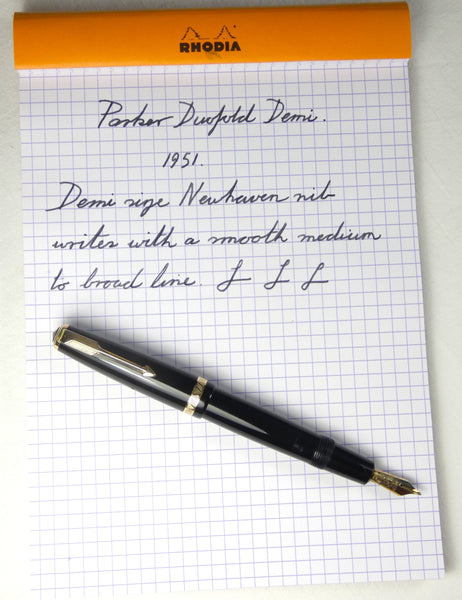 RHODIA
Parker Duofold Demi.
1951.
Demi size Newhaven nib
writes with a smooth medium
to broad line. L L L